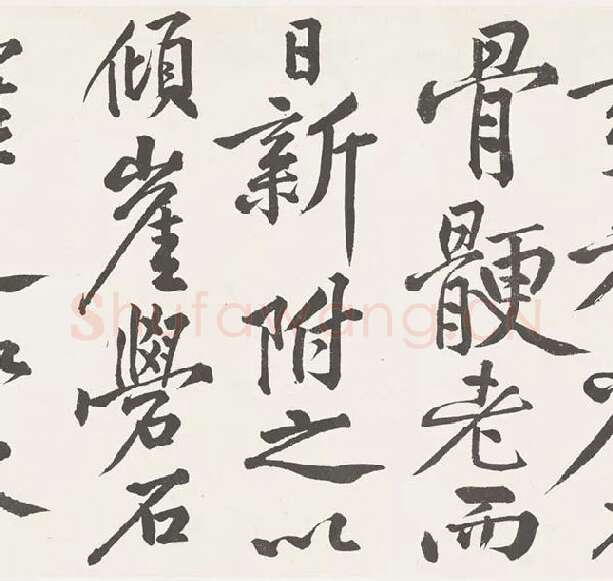 骨骾老而
日新附之以
傾崖礐石
Shufawang.CN